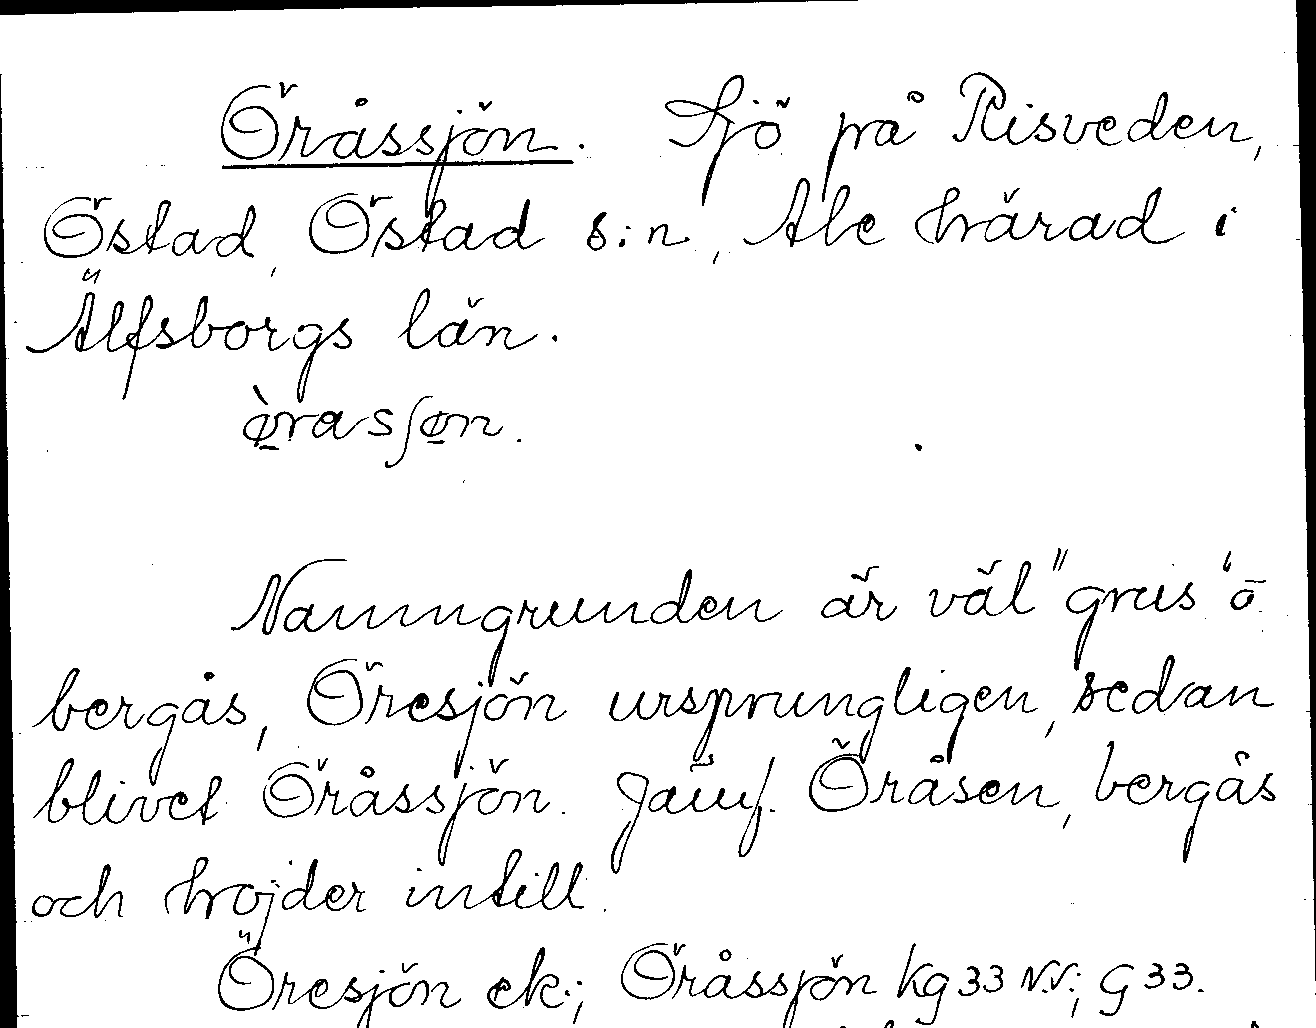 Öråssjön. Sjö på Risveden,
Östad, Östad s:n, Ale härad i
Älfsborgs län.
ø̀rasʃøn.
Namngrunden är väl "grus" ö.
bergås, Öresjön ursprungligen, sedan
blivet Öråssjön. Jämf. Öråsen, bergås
och höjder intill.
Öresjön ek.; Öråssjön Kg 33 N.V.; G 33.